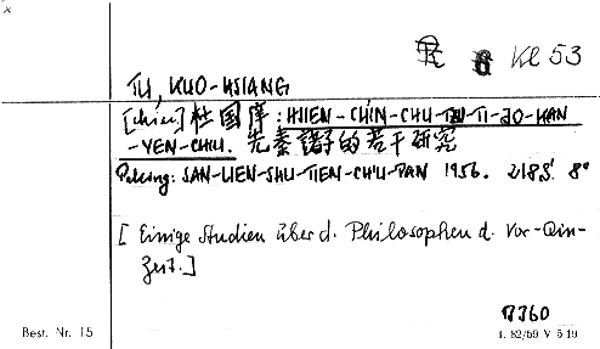 x
Kl 53
TU, KUO-HSIANG
[chin.] 杜国庠: HSIEN-CHIN-CHU-TZU-TI-JO-KAN
-YEN-CHIU. 先秦諸子的若干研究
Peking: SAN-LIEN-SHU-TIEN-CH'U-PAN 1956. 218 S. 8°
[Einige Studien über d. Philosophen d. Vor-Qin-
Zeit.]
Best. Nr. 15